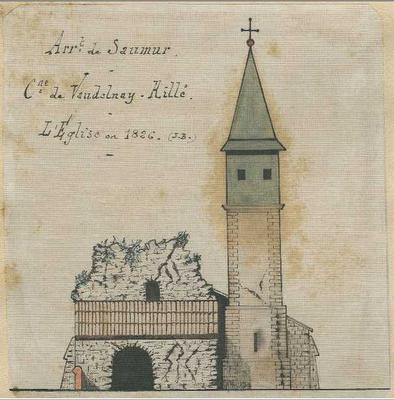 Arrt de Saumur.
Cne de Vaudelnay-Rillé.
L'Église en 1826. (J.B.)